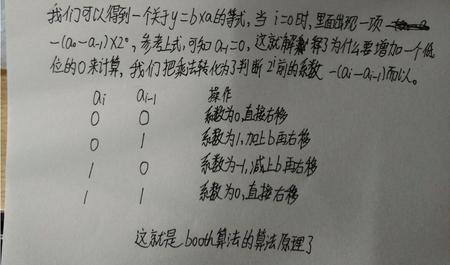 我们可以得到一个关于y=b×a的等式,当i=0时,里面出现一项
-(a₀-a₋₁)×2⁰,参考上式,可知a₋₁=0,这就解释了为什么要增加一个低
位的0来计算,我们把乘法转化为了判断2ⁱ前的系数-(aᵢ-aᵢ₋₁)而以。
aᵢ aᵢ₋₁ 操作
0 0 系数为0,直接右移
0 1 系数为1,加上b再右移
1 0 系数为-1,减上b再右移
1 1 系数为0,直接右移
这就是booth算法的算法原理了